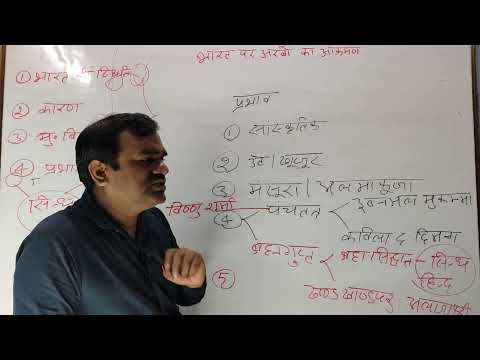 भारत पर अरबों का आक्रमण
① भारत की स्थिति
② कारण
③ मु॰ बि
④ प्रभा
प्रभाव
① सांस्कृतिक
② ऊंट / खजूर
③ मंसूरा / अल माफूजा
विष्णु शर्मा
④ पंचतंत्र
इबनमल मुकफ्फा
कलिला द दिमना
ब्रह्मगुप्त
ब्रह्म सिद्धांत - सिन्ध हिन्द
खण्ड खाण्डक
अलफाजारी
⑤